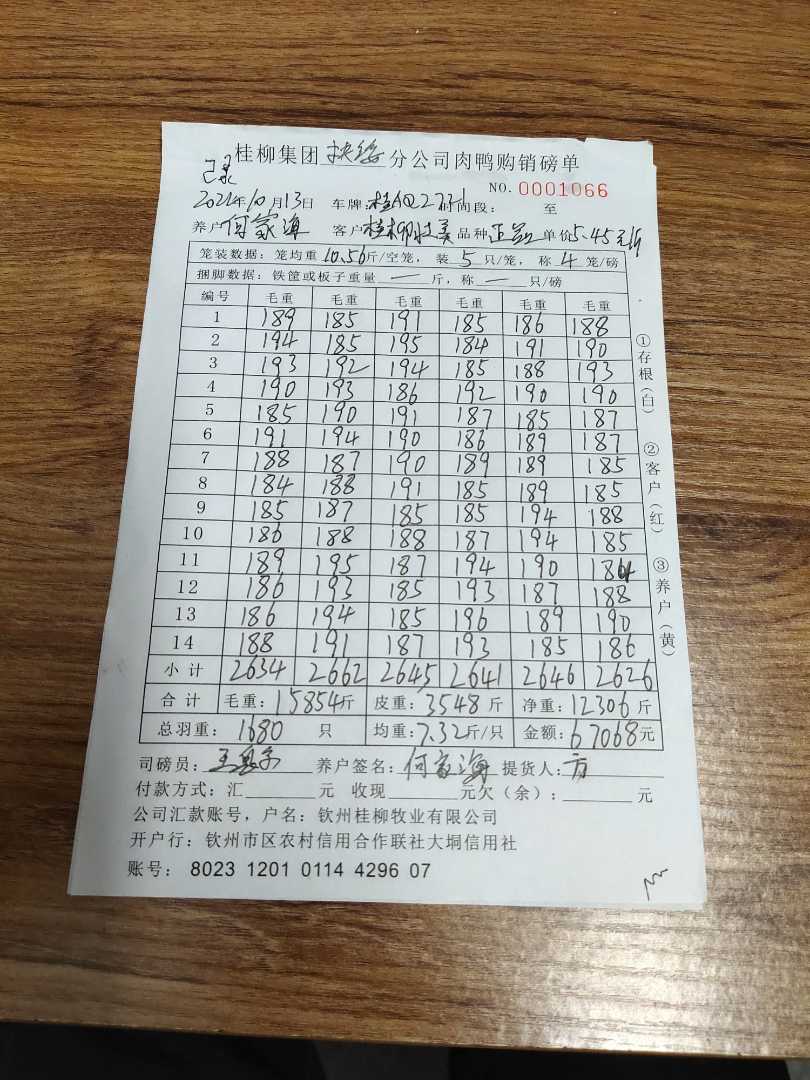 桂柳集团扶绥分公司肉鸭购销磅单
已录
NO. 0001066
10月13日 车牌: 时间段: 至
养户何家海 客户桂柳 品种 单价5.45元/斤
笼装数据: 笼均重10.56斤/空笼, 装5只/笼, 称4笼/磅
捆脚数据: 铁筐或板子重量—斤, 称—只/磅
编号 毛重 毛重 毛重 毛重 毛重 毛重
1 189 185 191 185 186 188
2 194 185 195 184 191 190
3 193 192 194 185 188 193
4 190 193 186 192 190 190
5 185 190 191 187 185 187
6 191 194 190 186 189 187
7 188 187 190 189 189 185
8 184 188 191 185 189 185
9 185 187 185 185 194 188
10 186 188 188 187 194 185
11 189 195 187 194 190 184
12 186 193 185 193 187 188
13 186 194 185 196 189 190
14 188 191 187 193 185 186
小计 2634 2662 2645 2641 2646 2626
合计 毛重: 15854斤 皮重: 3548斤 净重: 12306斤
总羽重: 1680 只 均重: 7.32斤/只 金额: 67068元
司磅员: 养户签名: 何家海 提货人: 方
付款方式: 汇 元 收现 元欠(余): 元
公司汇款账号, 户名: 钦州桂柳牧业有限公司
开户行: 钦州市区农村信用合作联社大垌信用社
账号: 8023 1201 0114 4296 07
①存根(白) ②客户(红) ③养户(黄)